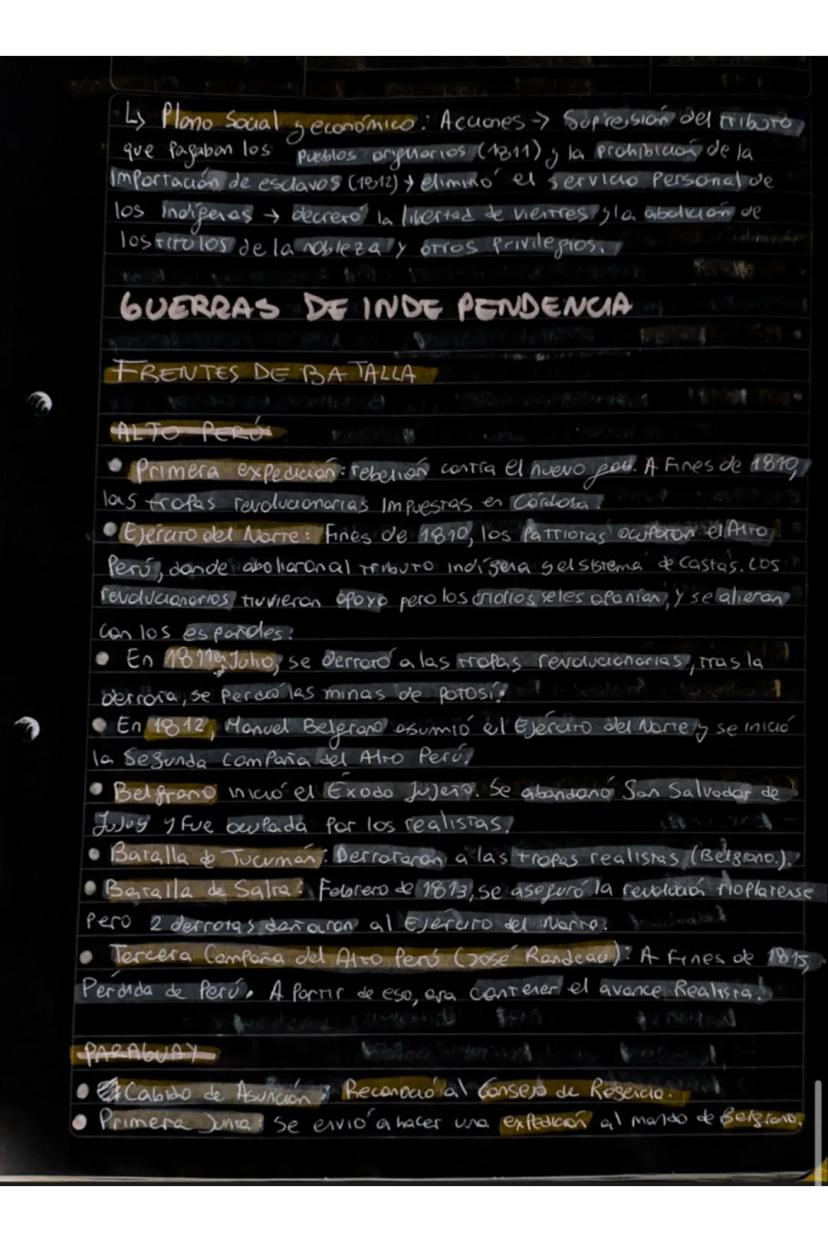 ↳ Plano Social y económico: Acciones → Supresión del tributo
que pagaban los pueblos originarios (1811) y la prohibición de la
importación de esclavos (1812) y eliminó el servicio personal de
los indígenas → decretó la libertad de vientres y la abolición de
los títulos de la nobleza y otros privilegios.
GUERRAS DE INDEPENDENCIA
FRENTES DE BATALLA
ALTO PERÚ
• Primera expedición: rebelión contra el nuevo gob. A fines de 1810,
las tropas revolucionarias impuestas en Córdoba.
• Ejército del Norte: Fines de 1810, los patriotas ocuparon el Alto
Perú, donde abolieron al tributo indígena y el sistema de castas. Los
revolucionarios tuvieron apoyo pero los criollos se les oponían, y se alieron
con los españoles.
• En 1811 en Julio, se derrotó a las tropas revolucionarias, tras la
derrota, se perdió las minas de Potosí.
• En 1812, Manuel Belgrano asumió el Ejército del Norte y se inició
la Segunda Campaña del Alto Perú.
• Belgrano inició el Éxodo Jujeño. Se abandonó San Salvador de
Jujuy y fue ocupada por los realistas.
• Batalla de Tucumán: Derrotaron a las tropas realistas (Belgrano.)
• Batalla de Salta: Febrero de 1813, se aseguró la revolución rioplatense
pero 2 derrotas dañaron al Ejército del Norte.
• Tercera Campaña del Alto Perú (José Rondeau): A fines de 1815,
Pérdida de Perú. A partir de eso, era contener el avance Realista.
PARAGUAY
• Cabildo de Asunción: Reconoció al Consejo de Regencia.
• Primera Junta: Se envió a hacer una expedición al mando de Belgrano.